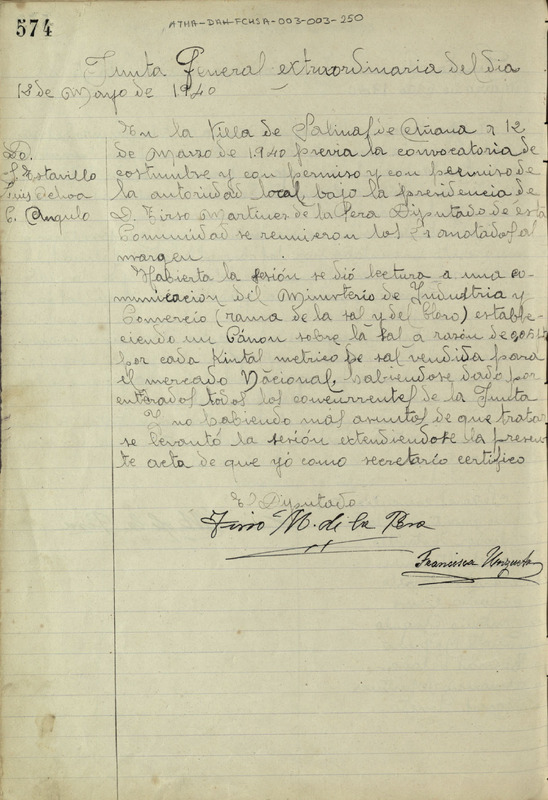 574
ATHA-DAH-FCHSA-003-003-250
Junta General extraordinaria del dia
12 de Mayo de 1940
Do.
Luis Ochoa
C. Angulo
En la Villa de Salinas de Añana a 12
de Marzo de 1.940 previa la convocatoria de
costumbre y con permiso y con permiso de
la autoridad local, bajo la presidencia de
D. Tirso Martines de la Pera Diputado de ésta
Comunidad se reunieron los Sr anotados al
margen
Habierta la sesión se dió lectura a una co-
municacion del Ministerio de Industria y
Comercio (rama de la sal y del Cloro) estable-
ciendo un Cánon sobre la sal a razón de
por cada kintal metrico de sal vendida para
el mercado Nacional, habiendose dado por
enterados todos los concurrentes de la Junta
Y no habiendo más asuntos de que tratar
se levantó la sesión extendiendose la presen-
te acta de que yó como secretario certifico
El Diputado
Tirso M. de la Pera
Francisca Unzueta